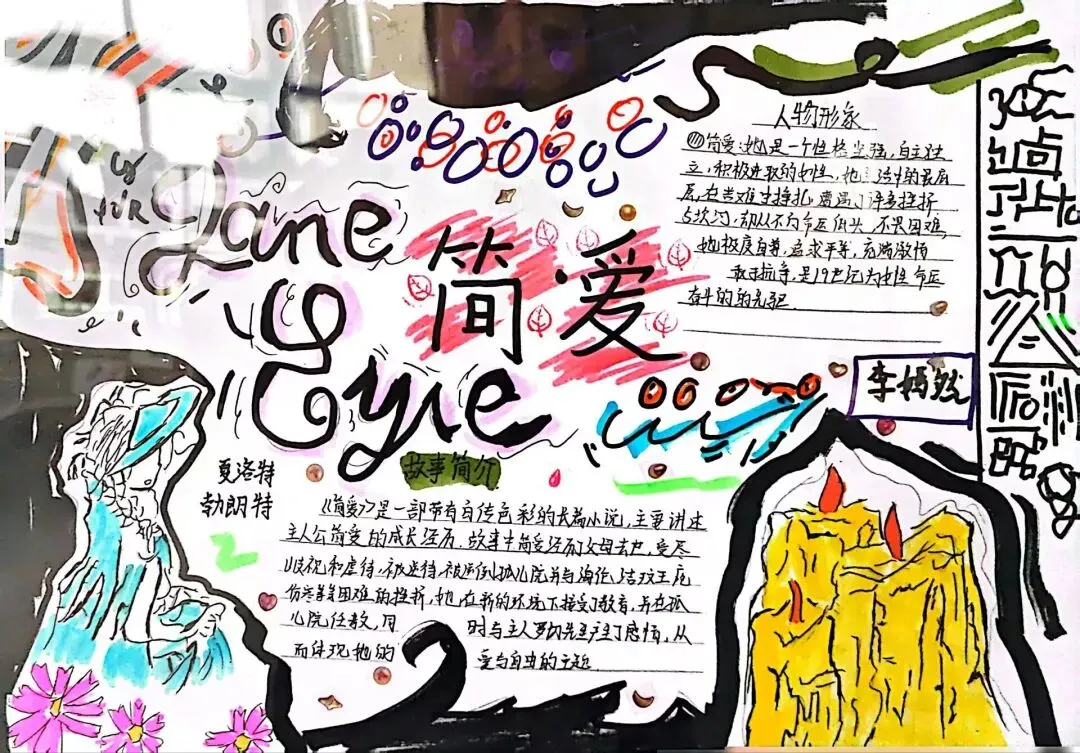 Jane
Eyre
简爱
人物形象
简爱:她是一个性格坚强,自主独
立,积极进取的女性,她 活中的最底
层,在苦难中挣扎,遭遇了许多挫折
与坎坷,却从不向命运低头,不畏困难,
她极度自尊,追求平等,充满激情
敢于抗争,是19世纪为女性命运
奋斗的的先驱
李嫣然
故事简介
夏洛特
勃朗特
《简爱》是一部带有自传色彩的长篇小说,主要讲述
主人公简爱的成长经历.故事中简爱经历父母去世,受尽
歧视和虐待,被 孤儿院并与海伦
等困难的挫折,她在新的环境下接受了教育,并在孤
儿院任教,同时与主人罗 先生产生了感情,从
而体现她的 爱与自由的主题